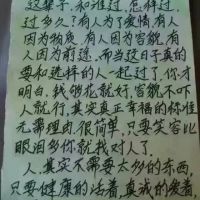 这辈子，和谁过，怎样过，
过多久？有人为了爱情，有人
因为物质，有人因为容貌，有
人因为前途，而当这日子真的
要和选择的人一起过了，你才
明白，钱够花就好，容貌不吓
人就行，其实真正幸福的标准
无需理由，很简单，只要笑容比
眼泪多你就找对人了，
人，其实不需要太多的东西，
只要健康的活着，真诚的爱着，